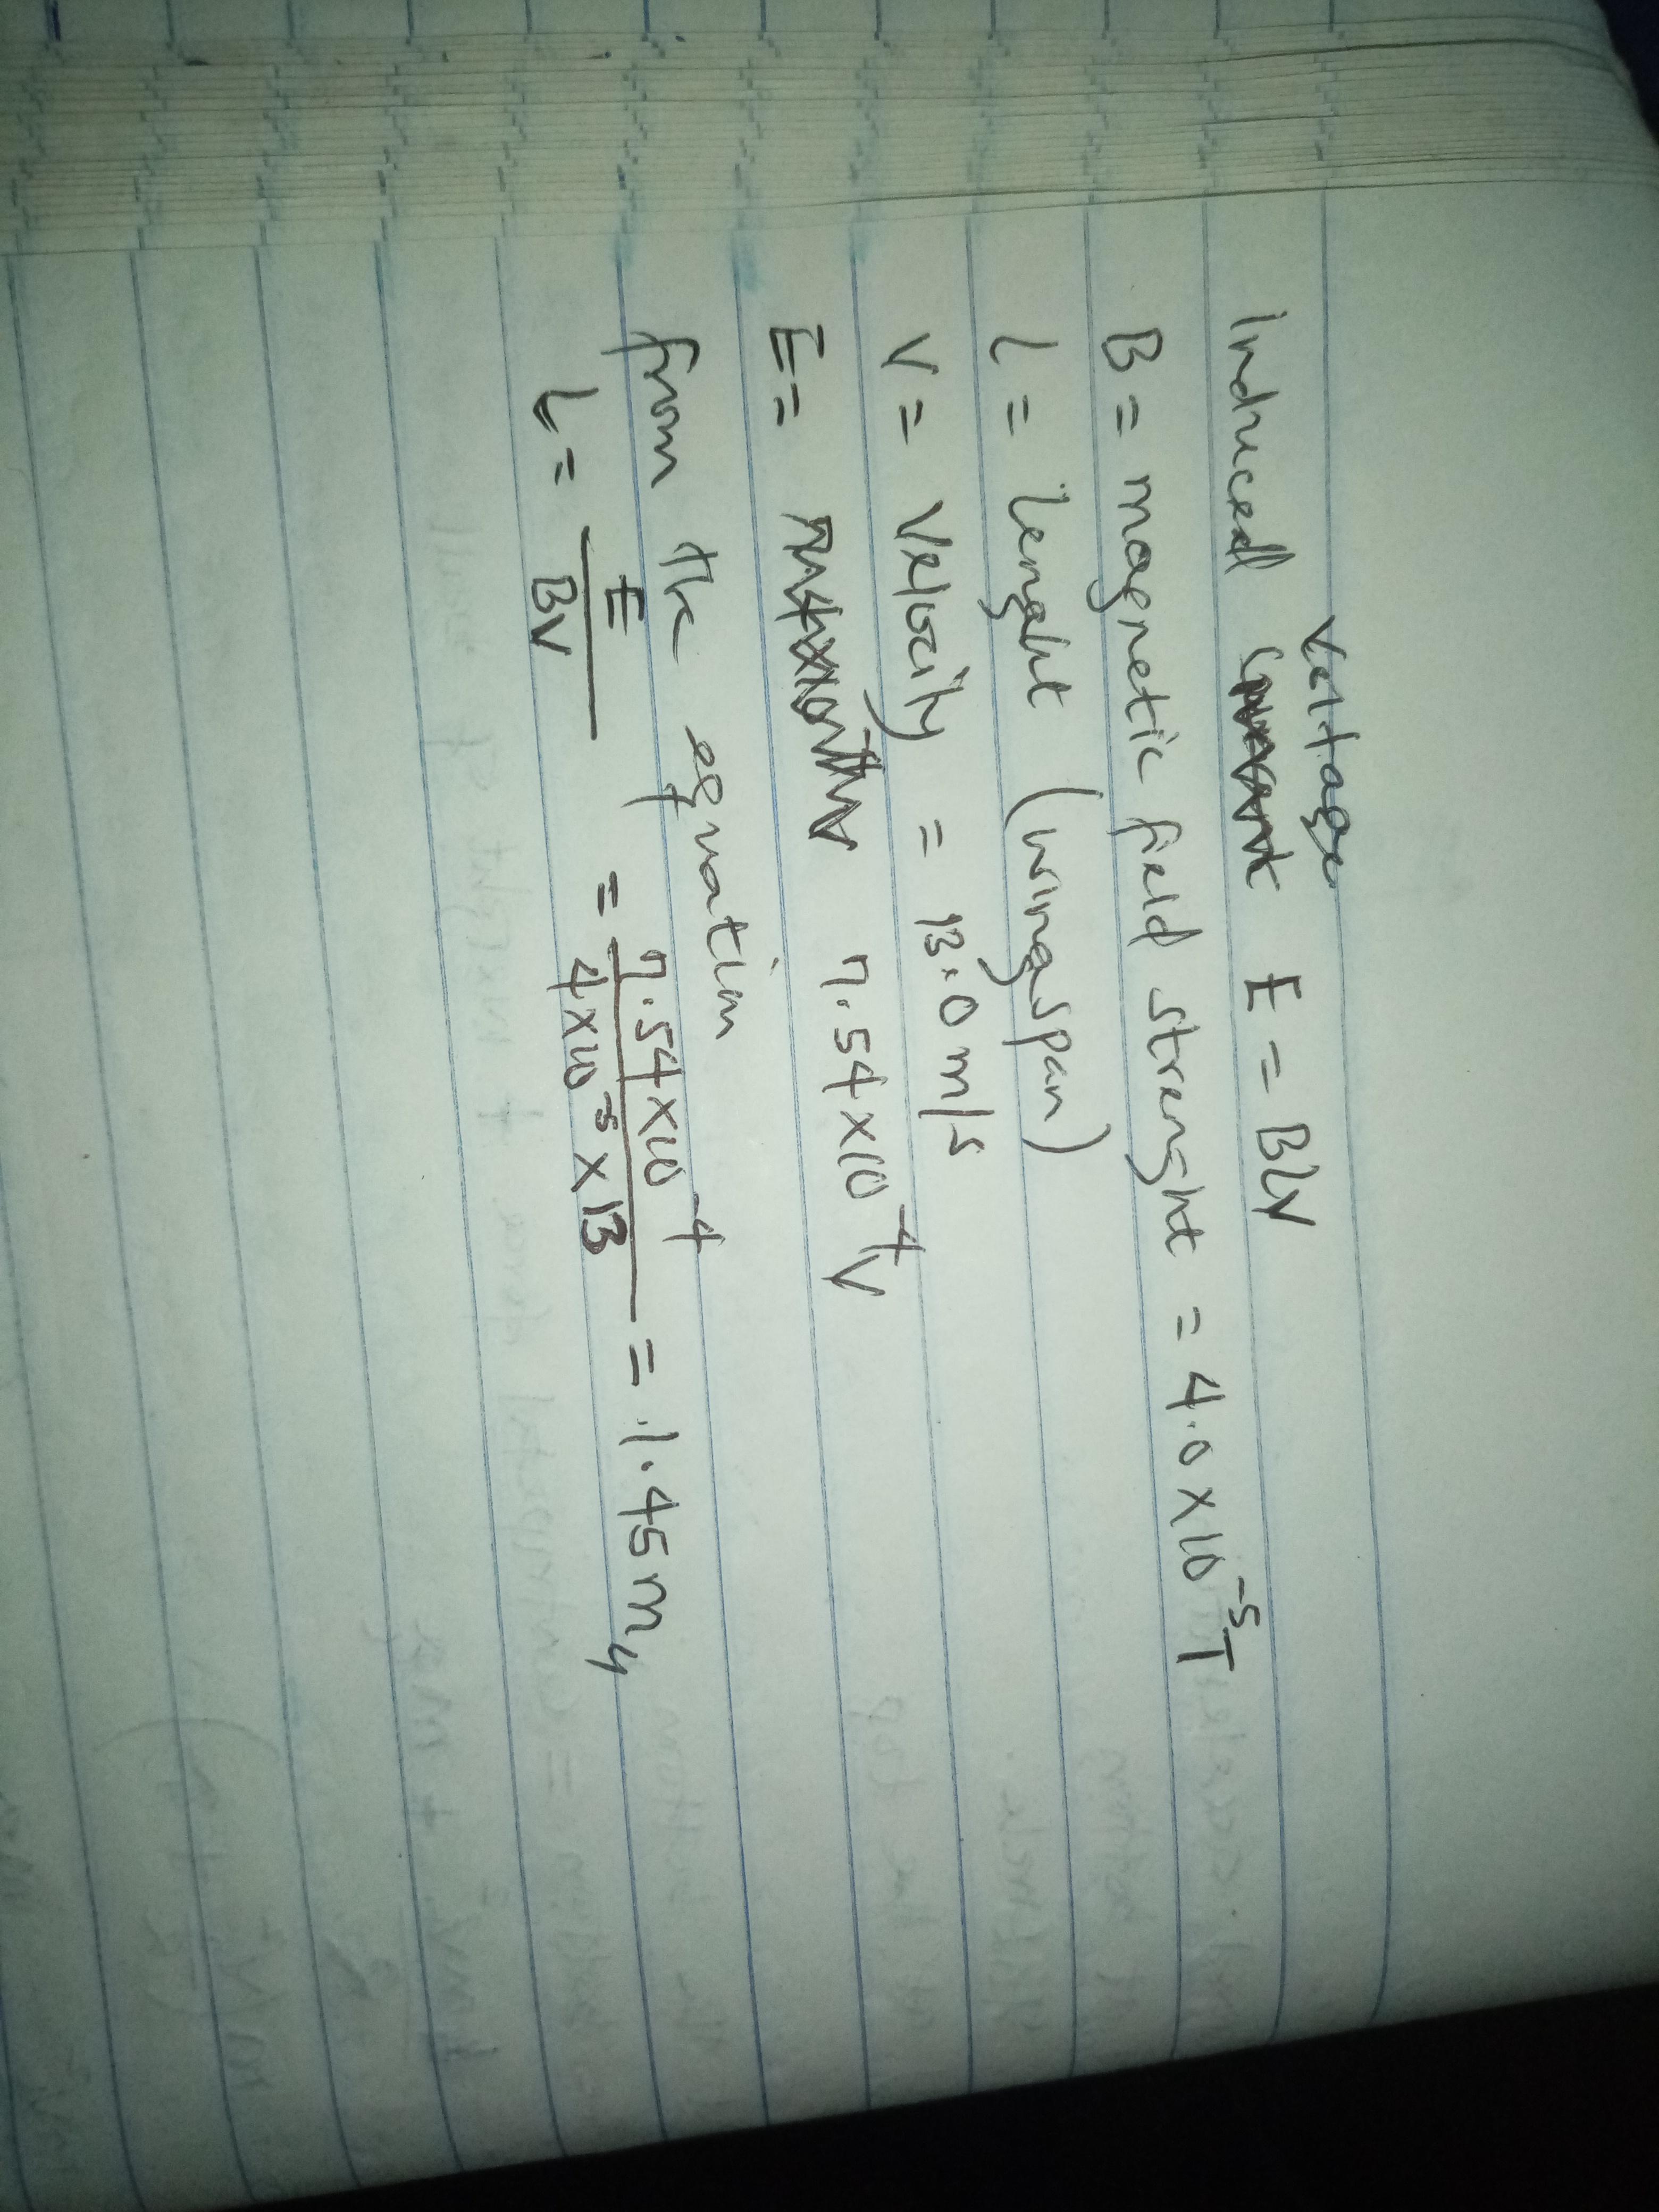 Voltage
Induced E = BLV
B = magnetic field strenght = 4.0 x 10⁻⁵ T
L = lenght (wingspan)
V = velocity = 13.0 m/s
E = 7.54 x 10⁻⁴ V
from the equation
L = E/BV = 7.54 x 10⁻⁴/4 x 10⁻⁵ x 13 = 1.45 m